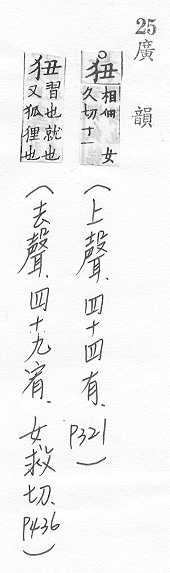 25 廣韻
狃 相狃女久切十一 (上聲、四十四有、P321)
狃 習也就也又狐狸也 (去聲、四十九宥、女救切、P436)